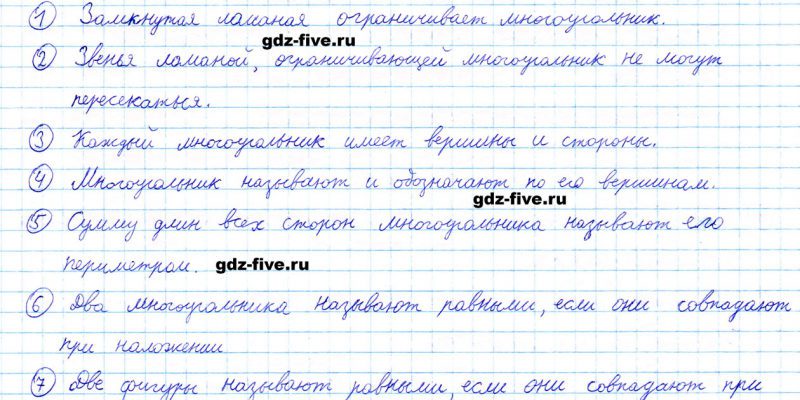 1 Замкнутая ломаная ограничивает многоугольник.
gdz-five.ru
2 Звенья ломаной, ограничивающей многоугольник не могут
пересекаться.
3 Каждый многоугольник имеет вершины и стороны.
4 Многоугольник называют и обозначают по его вершинам.
gdz-five.ru
5 Сумму длин всех сторон многоугольника называют его
периметром. gdz-five.ru
6 Два многоугольника называют равными, если они совпадают
при наложении
7 Две фигуры называют равными, если они совпадают при